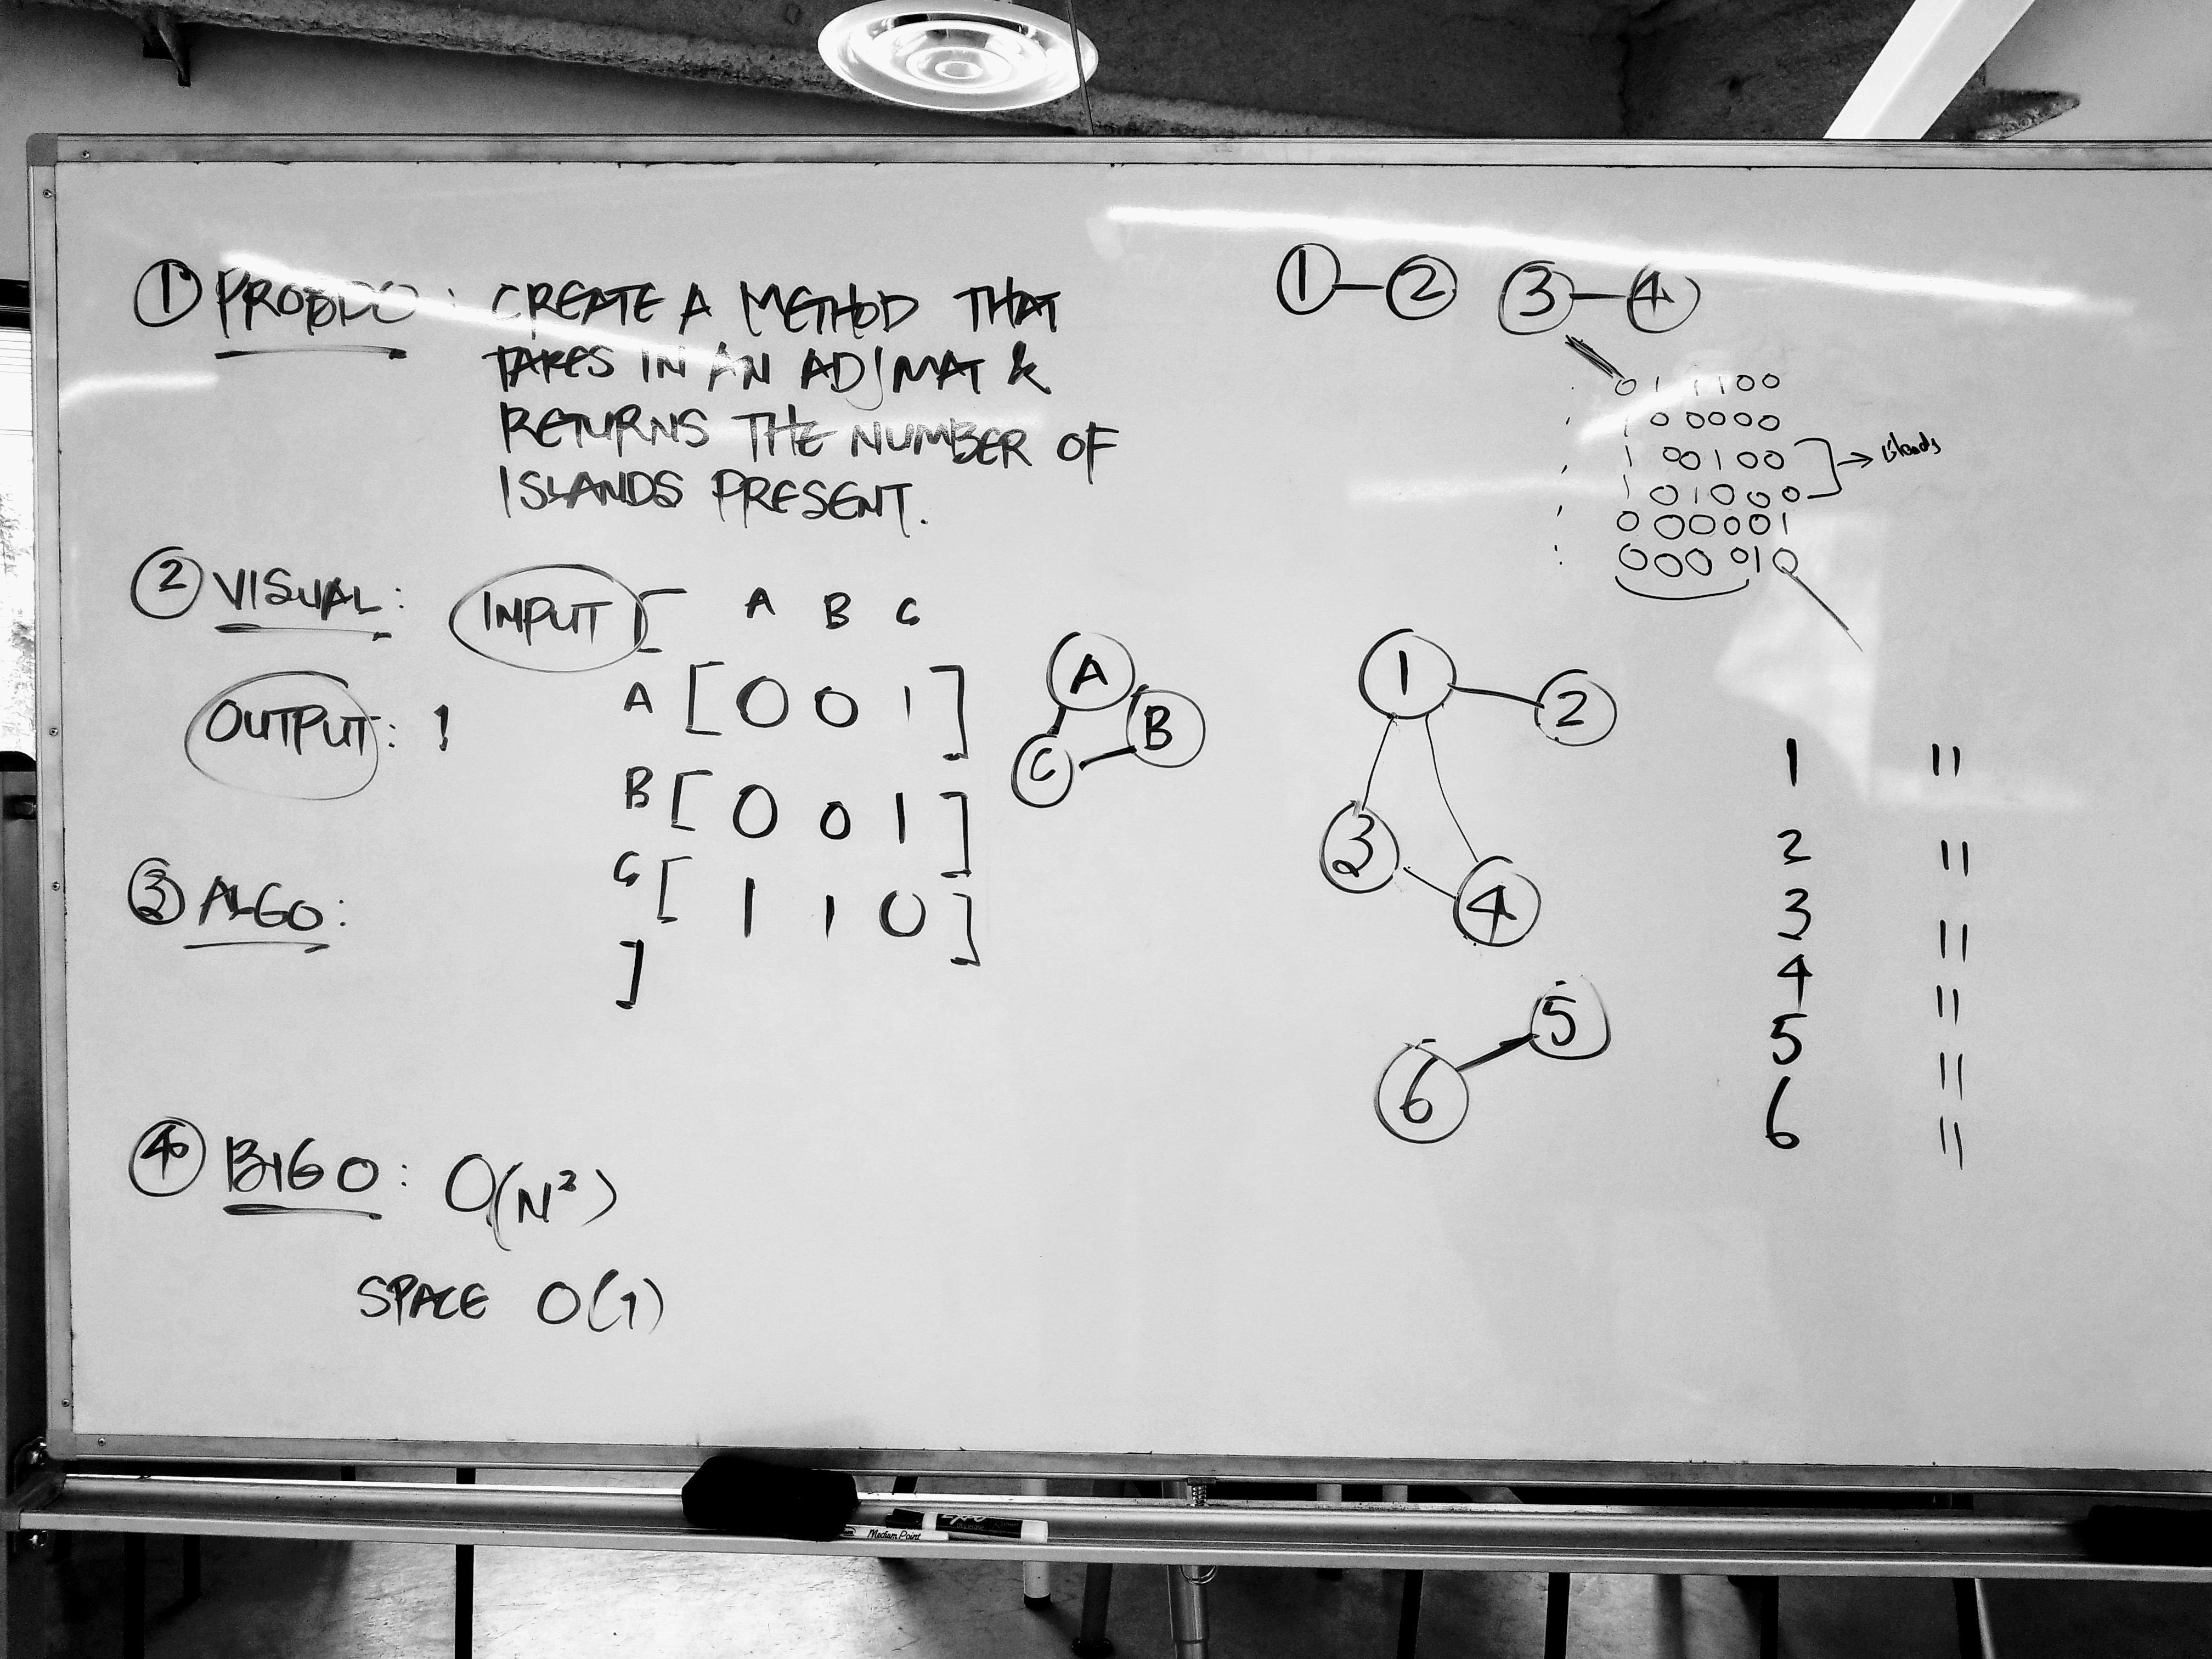 ① PROBDO : CREATE A METHOD THAT
TAKES IN AN ADJMAT &
RETURNS THE NUMBER OF
ISLANDS PRESENT.
② VISUAL: INPUT [ A B C
A [ 0 0 1 ]
B [ 0 0 1 ]
C [ 1 1 0 ]
]
OUTPUT: 1
A
B
C
③ ALGO:
④ BIGO: O(N²)
SPACE O(1)
1 - 2 3 - 4
0 1 1 1 0 0
1 0 0 0 0 0
1 0 0 1 0 0
1 0 1 0 0 0
→ islands
0 0 0 0 0 1
0 0 0 0 1 0
1
2
3
4
5
6
1 11
2 11
3 11
4 11
5 11
6 11
EXPO
Medium Point